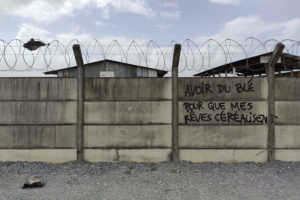 AVOIR DU BLÉ
POUR QUE MES
RÊVES CÉRÉALISENT